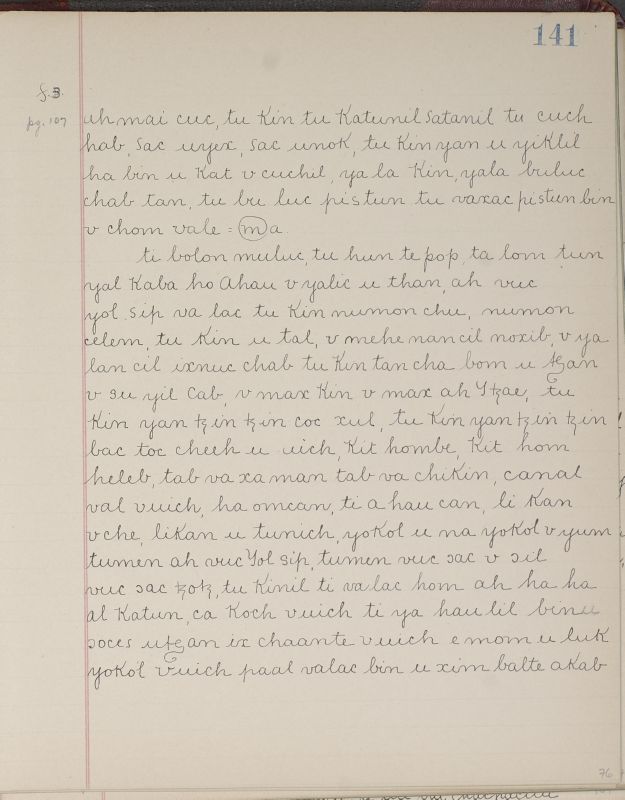 141
f. 3.
pg. 107
uh mai cuc, tu Kin tu Katunil Satanil tu cuch
hab, Sac uyex, Sac unok, tu Kin yan u yiklil
ha bin u Kat v cuchil, ya la Kin, yala buluc
chab tan, tu bu luc pistun tu vaxac pistun bin
v chom vale = m a
ti bolon muluc, tu hun te pop, ta lom tun
yal Kaba ho Ahau v yalic u than, ah vuc
yol sip va lac tu Kin numon chu, numon
celem, tu Kin u tal, v mehe nancil noxib, v ya
lan cil ixnuc chab tu Kin tan cha bom u tzan
v ɔu yil Cab, v max Kin v max ah Ytzae, tu
Kin yan tz in tz in coc xul, tu Kin yan tz in tz in
bac toc cheeh u uich, Kit hombe, Kit hom
heleb, tab va xa man tab va chiKin, canal
val vuich, ha omcan, ti a hau can, li Kan
v che, likan u tunich, yoKol u na yoKol v yum
tumen ah vuc Yol Sip, tumen vuc ɔac v ɔil
vuc ɔac tzotz, tu Kinil ti valac hom ah ha ha
al Katun, ca Koch vuich ti ya hau lil binu
ɔoces utzan ix chaante vuich emom u luk
yoKol vuich paal valac bin u xim balte aKab
76